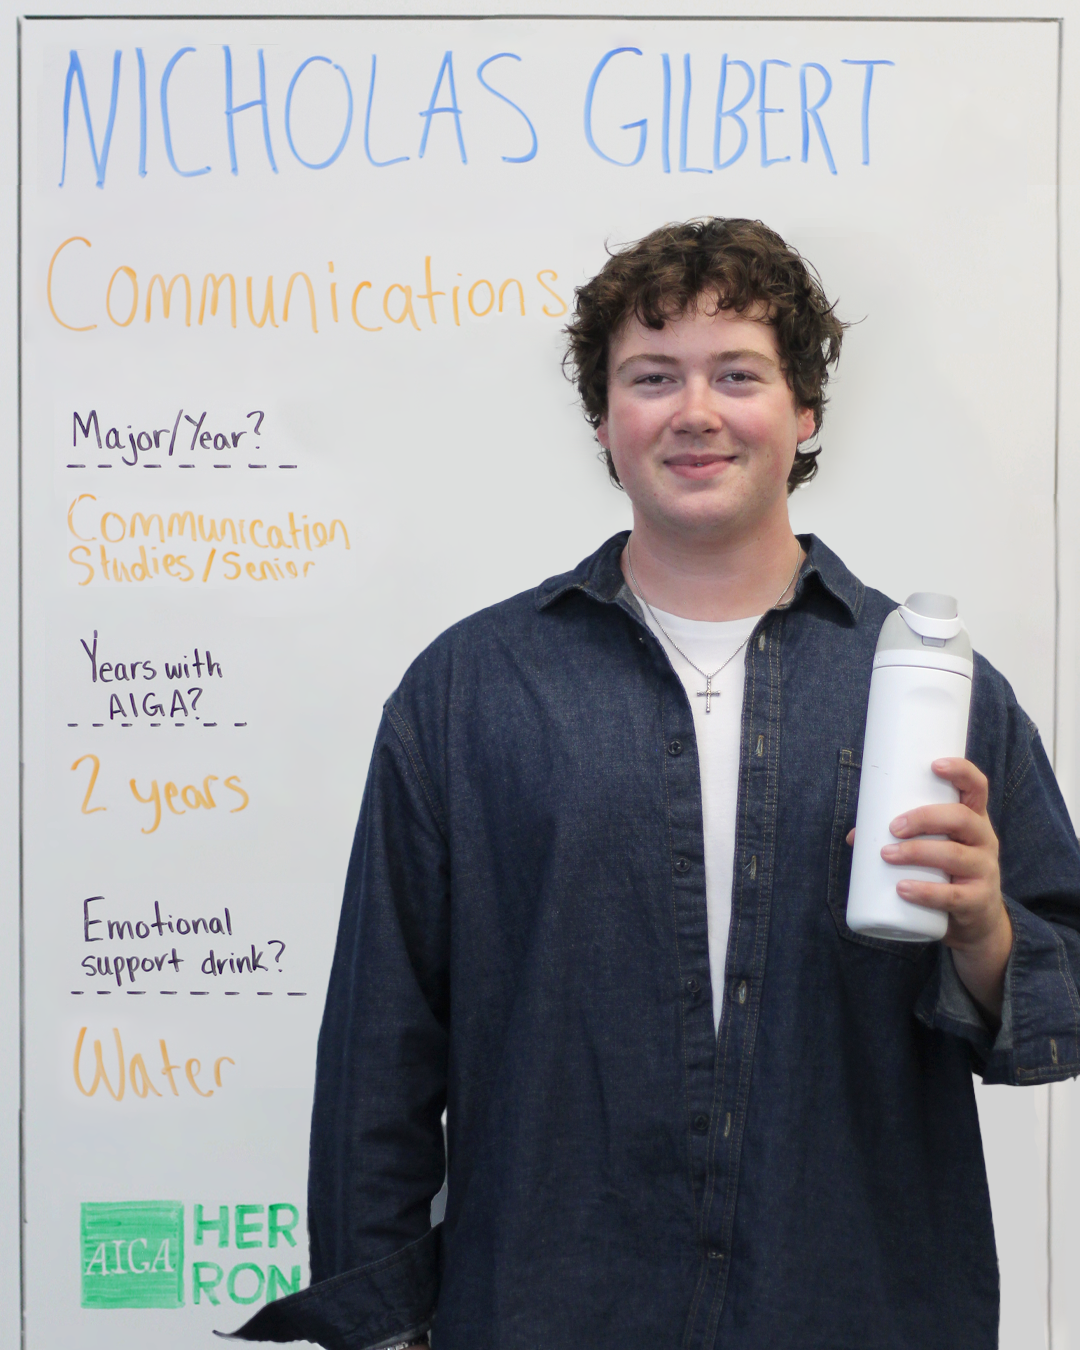 NICHOLAS GILBERT
Communications
Major/Year?
Communication
Studies/Senior
Years with
AIGA?
2 years
Emotional
support drink?
Water
AIGA
HER
RON